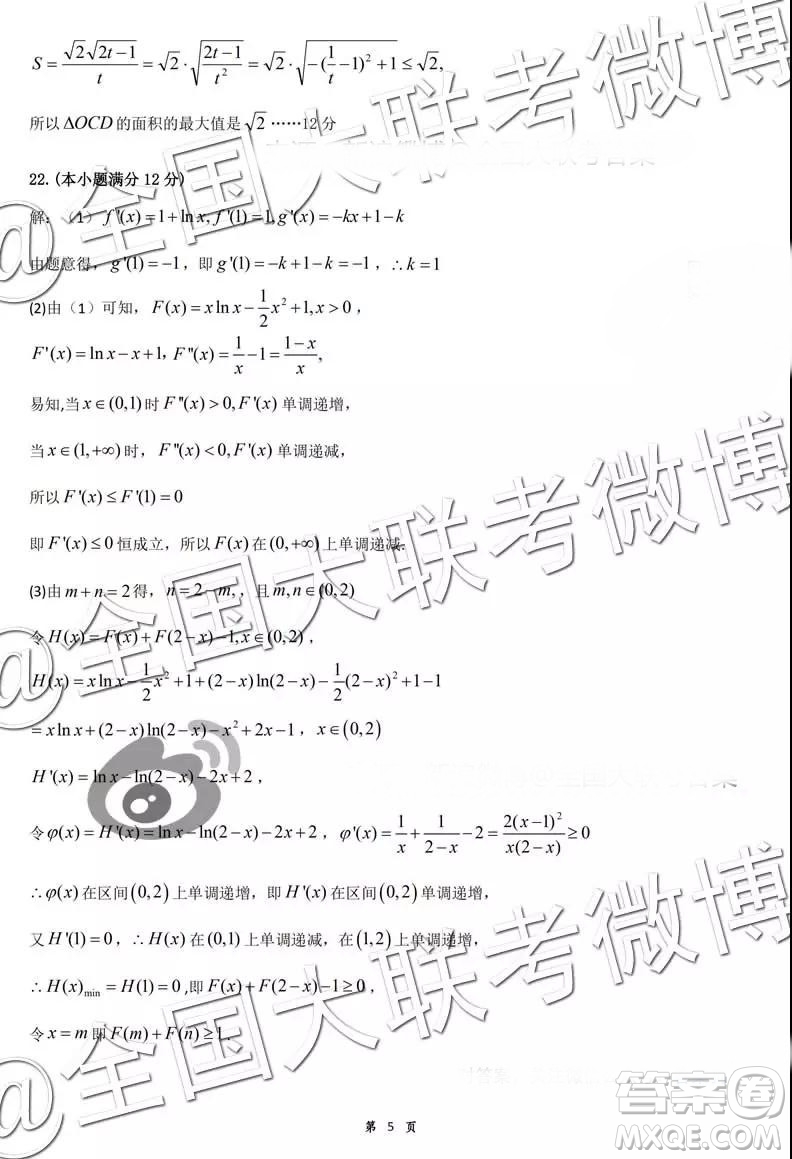 S=√2√(2t−1)/t=√2·√((2t−1)/t²)=√2·√(−(1/t−1)²+1)≤√2,
所以ΔOCD的面积的最大值是√2 ……12分
22.(本小题满分12分)
解:(1) f'(x)=1+ln x, f'(1)=1, g'(x)=−kx+1−k
由题意得,g'(1)=−1,即g'(1)=−k+1−k=−1,∴k=1
(2)由(1)可知,F(x)=x ln x−1/2x²+1, x>0,
F'(x)=ln x−x+1,F''(x)=1/x−1=(1−x)/x,
易知,当x∈(0,1)时F''(x)>0,F'(x)单调递增,
当x∈(1,+∞)时,F''(x)<0,F'(x)单调递减,
所以F'(x)≤F'(1)=0
即F'(x)≤0恒成立,所以F(x)在(0,+∞)上单调递减.
(3)由m+n=2得,n=2−m,,且m,n∈(0,2)
令H(x)=F(x)+F(2−x)−1,x∈(0,2),
H(x)=x ln x−1/2x²+1+(2−x)ln(2−x)−1/2(2−x)²+1−1
=x ln x+(2−x)ln(2−x)−x²+2x−1,x∈(0,2)
H'(x)=ln x−ln(2−x)−2x+2,
令φ(x)=H'(x)=ln x−ln(2−x)−2x+2,φ'(x)=1/x+1/(2−x)−2=2(x−1)²/(x(2−x))≥0
∴φ(x)在区间(0,2)上单调递增,即H'(x)在区间(0,2)单调递增,
又H'(1)=0,∴H(x)在(0,1)上单调递减,在(1,2)上单调递增,
∴H(x)min=H(1)=0,即F(x)+F(2−x)−1≥0,
令x=m即F(m)+F(n)≥1.
第 5 页
@全国大联考微博
@全国大联考微博
答案圈
MXQE.COM